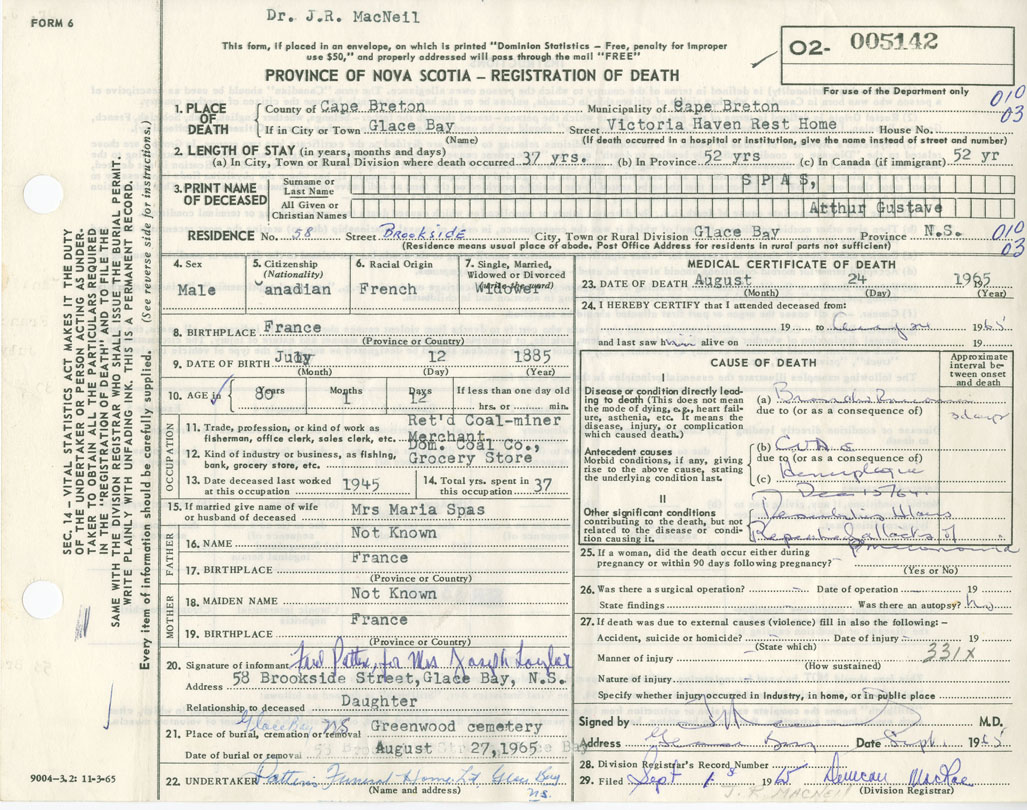 Dr. J.R. MacNeil
FORM 6
This form, if placed in an envelope, on which is printed "Dominion Statistics – Free, penalty for improper
use $50," and properly addressed will pass through the mail "FREE"
O2- 005142
PROVINCE OF NOVA SCOTIA – REGISTRATION OF DEATH
For use of the Department only
010
03
1. PLACE OF DEATH
County of Cape Breton Municipality of Cape Breton
If in City or Town Glace Bay Street Victoria Haven Rest Home House No.
(Name) (If death occurred in a hospital or institution, give the name instead of street and number)
2. LENGTH OF STAY (in years, months and days)
(a) In City, Town or Rural Division where death occurred 37 yrs. (b) In Province 52 yrs (c) In Canada (if immigrant) 52 yr
3. PRINT NAME OF DECEASED
Surname or Last Name SPAS,
All Given or Christian Names Arthur Gustave
RESIDENCE No. 58 Street Brookside City, Town or Rural Division Glace Bay Province N.S.
(Residence means usual place of abode. Post Office Address for residents in rural parts not sufficient)
010
03
4. Sex
Male
5. Citizenship (Nationality)
anadian
6. Racial Origin
French
7. Single, Married, Widowed or Divorced
Widower
8. BIRTHPLACE France
(Province or Country)
9. DATE OF BIRTH July 12 1885
(Month) (Day) (Year)
10. AGE Years Months Days If less than one day old
80 1 12 hrs. or min.
OCCUPATION
11. Trade, profession, or kind of work as fisherman, office clerk, sales clerk, etc. Ret'd Coal-miner
Merchant.
12. Kind of industry or business, as fishing, bank, grocery store, etc. Dom. Coal Co.,
Grocery Store
13. Date deceased last worked at this occupation 1945
14. Total yrs. spent in this occupation 37
15. If married give name of wife or husband of deceased Mrs Maria Spas
FATHER
16. NAME Not Known
17. BIRTHPLACE France
(Province or Country)
MOTHER
18. MAIDEN NAME Not Known
19. BIRTHPLACE France
(Province or Country)
20. Signature of informant for Mrs Joseph
Address 58 Brookside Street, Glace Bay, N.S.
Relationship to deceased Daughter
Glace Bay NS
21. Place of burial, cremation or removal Greenwood cemetery
Date of burial or removal August 27,1965
22. UNDERTAKER Patten Funeral Home Ltd Glace Bay
N.S.
(Name and address)
MEDICAL CERTIFICATE OF DEATH
23. DATE OF DEATH August 24 1965
(Month) (Day) (Year)
24. I HEREBY CERTIFY that I attended deceased from:
19 to Aug 24 1965
and last saw him alive on 19
CAUSE OF DEATH
Approximate interval between onset and death
I
Disease or condition directly leading to death (This does not mean the mode of dying, e.g., heart failure, asthenia, etc. It means the disease, injury, or complication which caused death.)
(a)
due to (or as a consequence of)
days
Antecedent causes
Morbid conditions, if any, giving rise to the above cause, stating the underlying condition last.
(b) C.V.A.
due to (or as a consequence of)
(c) Hemiplegia
Dec 15/64
II
Other significant conditions contributing to the death, but not related to the disease or condition causing it.
Repeated attacks of
25. If a woman, did the death occur either during pregnancy or within 90 days following pregnancy?
(Yes or No)
26. Was there a surgical operation? Date of operation 19
State findings Was there an autopsy? No
27. If death was due to external causes (violence) fill in also the following: –
Accident, suicide or homicide? Date of injury 19
(State which)
331X
Manner of injury
(How sustained)
Nature of injury
Specify whether injury occurred in Industry, in home, or in public place
Signed by M.D.
Address Glace Bay Date Sept. 1 1965
28. Division Registrar's Record Number
29. Filed Sept 1st 1965 Duncan MacRae
(Division Registrar)
J. R. MACNEIL
SEC. 14 – VITAL STATISTICS ACT MAKES IT THE DUTY
OF THE UNDERTAKER OR PERSON ACTING AS UNDER-
TAKER TO OBTAIN ALL THE PARTICULARS REQUIRED
IN THE "REGISTRATION OF DEATH" AND TO FILE THE
SAME WITH THE DIVISION REGISTRAR WHO SHALL ISSUE THE BURIAL PERMIT.
WRITE PLAINLY WITH UNFADING INK. THIS IS A PERMANENT RECORD.
Every item of information should be carefully supplied. (See reverse side for instructions.)
9004-3.2: 11-3-65